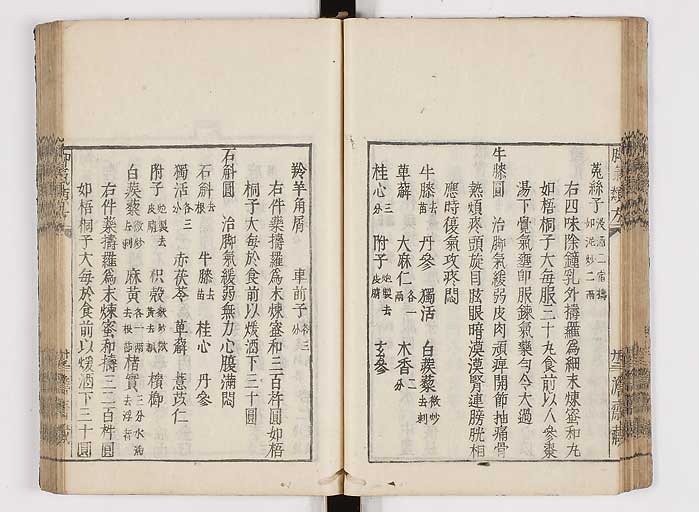 菟絲子浸酒二宿擣如泥炒二兩
右四味除鐘乳外擣羅爲細末煉蜜和丸
如梧桐子大每服二十丸食前以人參棗
湯下覺氣壅卽服鍊氣藥勻令大過
牛膝圓 治脚氣緩弱皮肉頑痺開節抽痛骨
熱煩疼頭旋目眩眼暗漠漠腎連膀胱相
應時復氣攻疼悶
牛膝去苗 丹參 獨活 白蒺藜微炒去刺
萆薢 大麻仁各一兩 木香二分
桂心三分 附子炮製去皮臍 玄參
羚羊角屑 車前子各三分
右件藥擣羅爲末煉蜜和三百杵圓如梧
桐子大每於食前以煖酒下三十圓
石斛圓 治脚氣緩弱無力心腹滿悶
石斛去根 牛膝去苗 桂心 丹參
獨活各三分 赤茯苓 萆薢 薏苡仁
附子炮製去皮臍 枳殼麩炒微黃去瓤 檳榔
白蒺藜微炒去刺 麻黃各一兩去根節 楮實三分水淘去浮者
右件藥擣羅爲末煉蜜和擣三二百杵圓
如梧桐子大每於食前以煖酒下三十圓